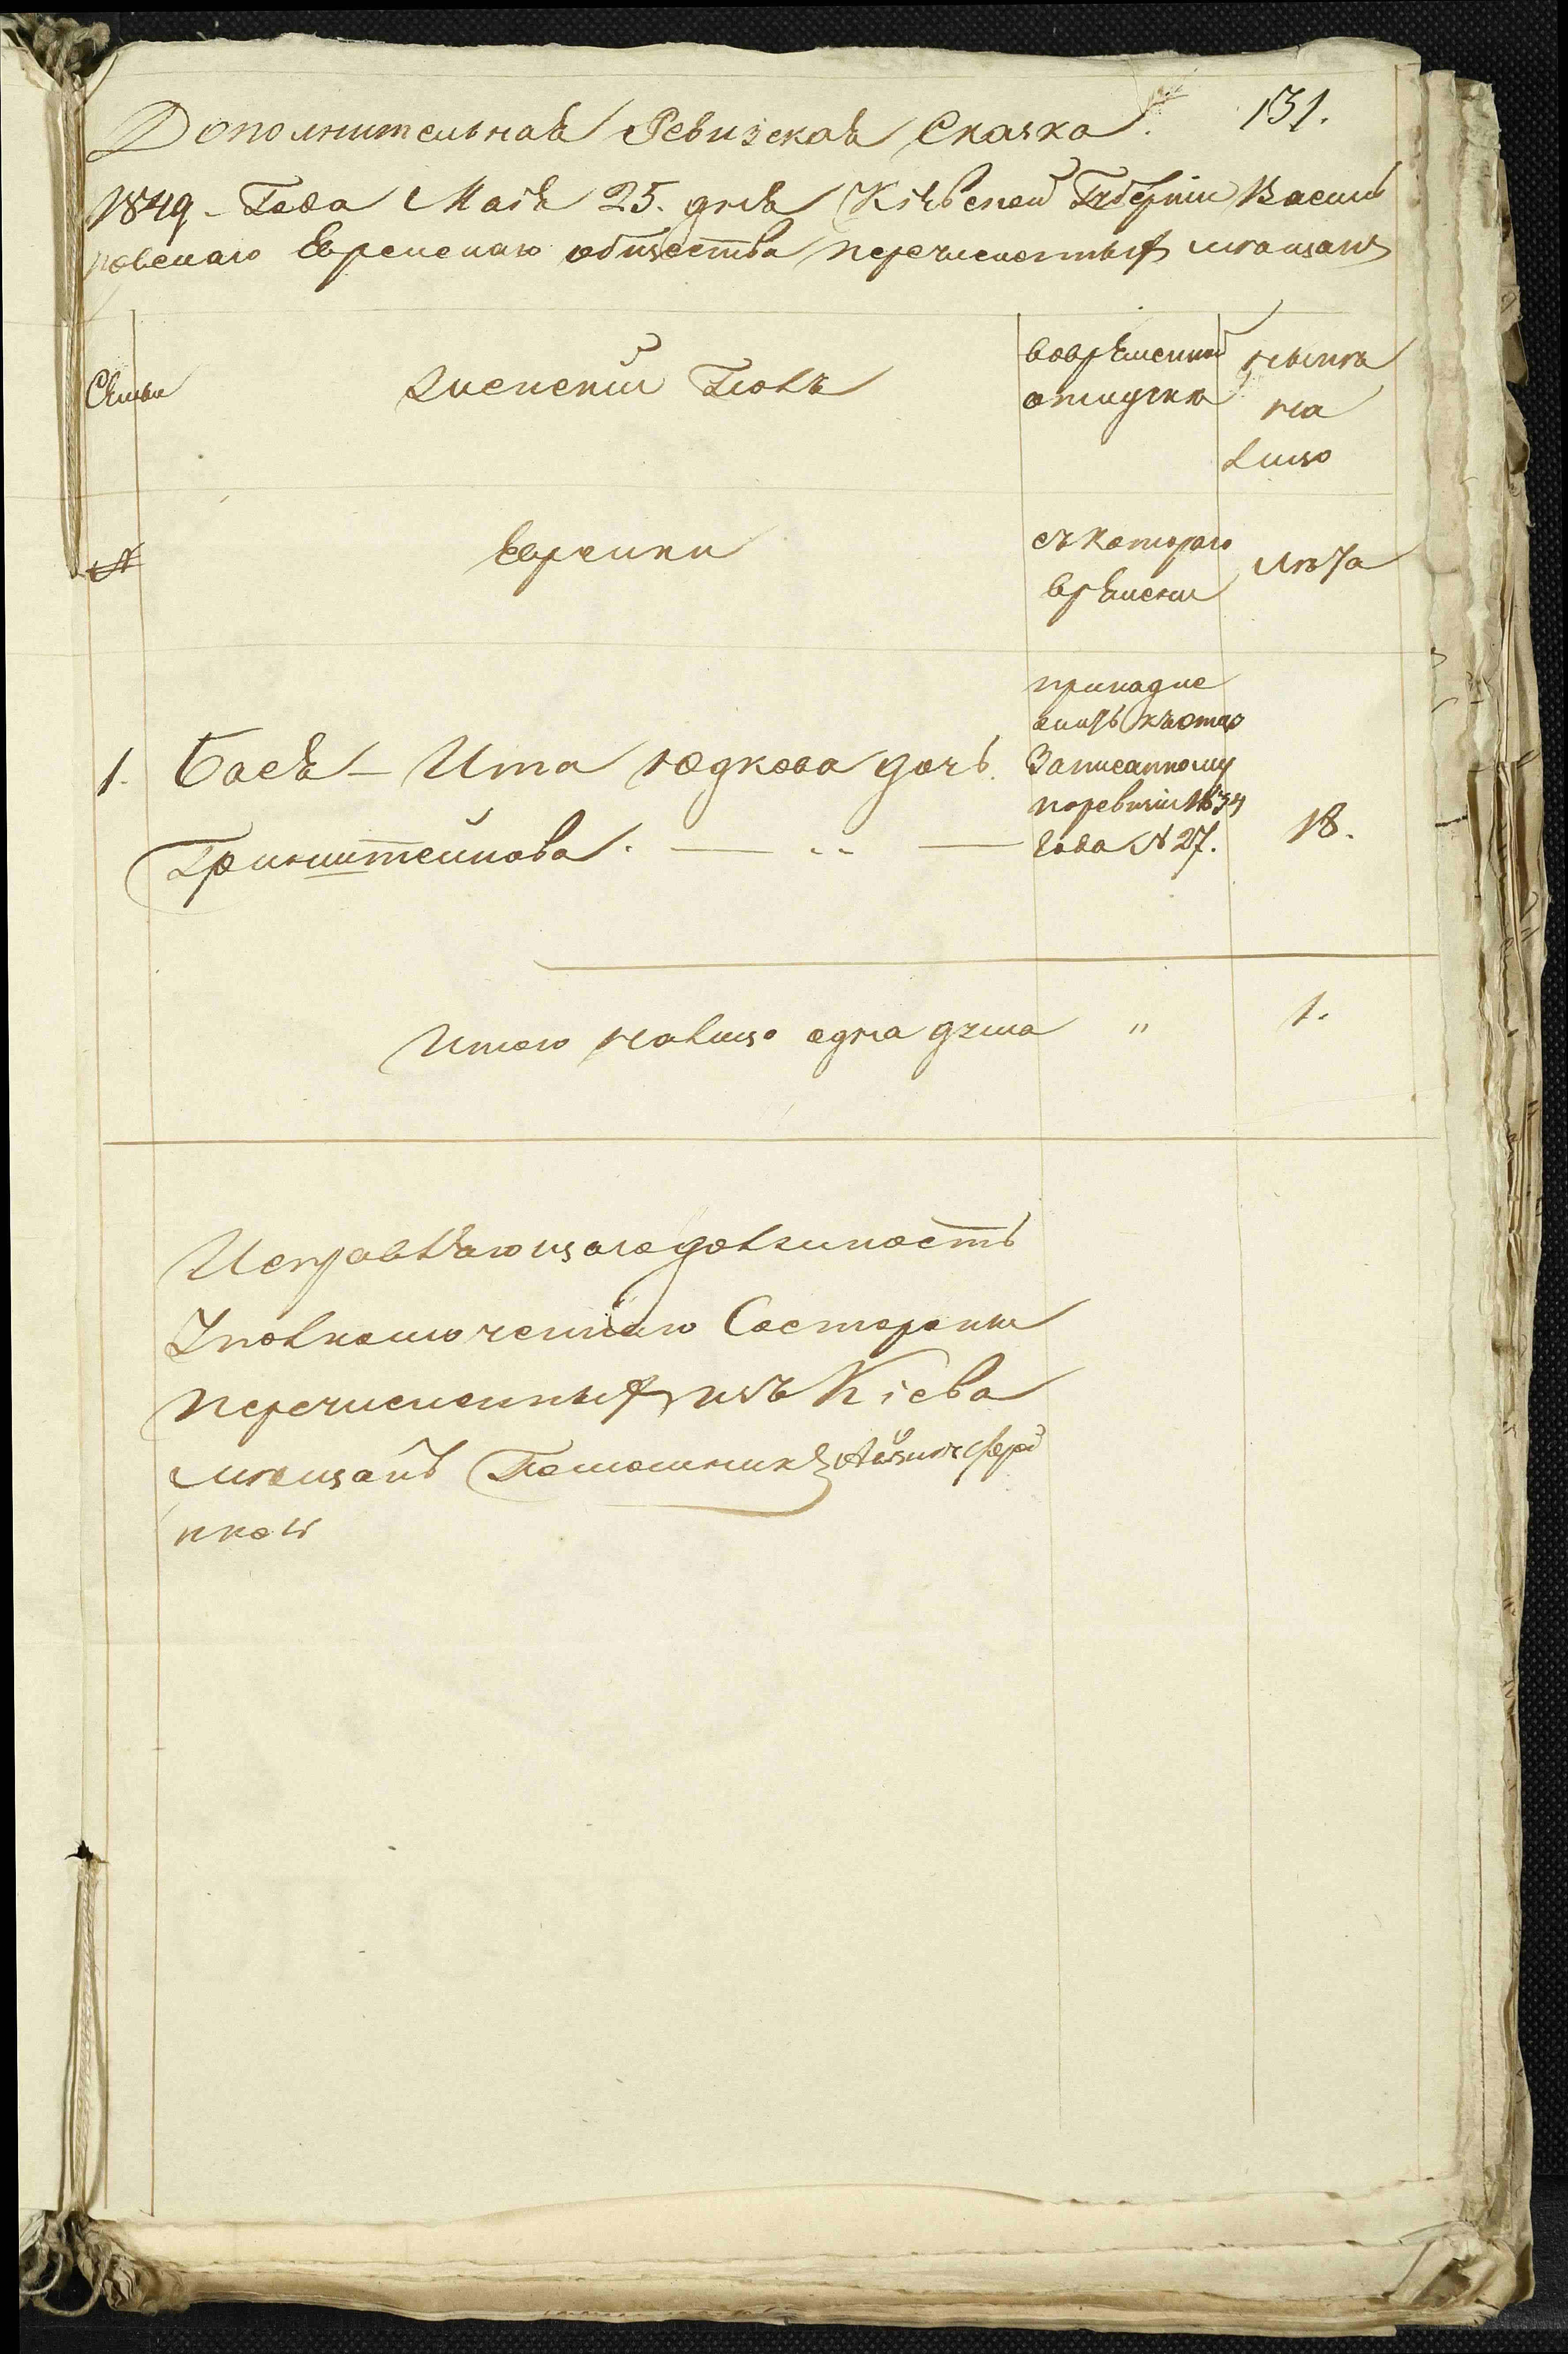 131.
Дополнительная Ревизская Сказка.
1849 - Года Маія 25. дня Кіевской Губерніи Василь
ковскаго Еврейскаго общества перечисленныхъ мѣщанъ
Семьи
женскій Полъ
вовремѣнной
отлучки
нынѣ
на
лицо
№
Еврейки
съ котораго
врѣмени
лѣта
1. Бася - Ита Юдкова дочь
Гринштейнова. — „ —
принадле
житъ къ отцу
Записанному
по ревизіи 1834
Года № 27.
18.
Итого на лицо одна душа " 1.
Исправляющаго должность
Уполномоченнаго Состороны
перечисленныхъ изъ Кіева
мѣщанъ Помошникъ